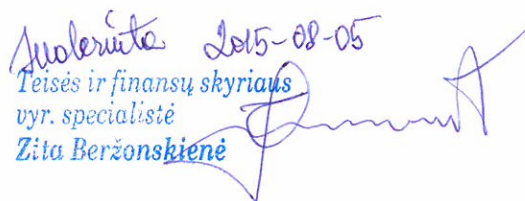 Suderinta 2015-08-05
Teisės ir finansų skyriaus
vyr. specialistė
Zita Beržonskienė